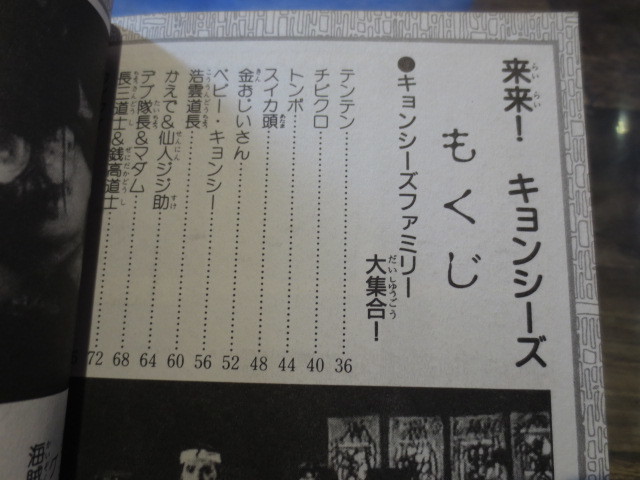 来来！ キョンシーズ
もくじ
●キョンシーズファミリー
大集合！
テンテン……36
チビクロ……40
トンボ……44
スイカ頭……48
金おじいさん……52
ベビー・キョンシー……56
浩雲道長……60
かえで&仙人ジジ助……64
デブ隊長&マダム……68
長三道士&銭高道士……72
海賊